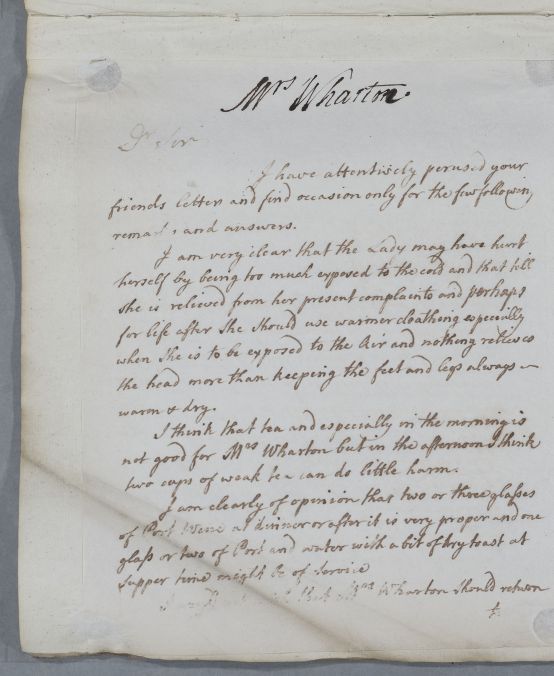 Mrs Wharton.
Dr Sir
I have attentively perused your
friends letter and find occasion only for the few following
remarks and answers.
I am very clear that the Lady may have hurt
herself by being too much exposed to the cold and that till
she is relieved from her present complaints and perhaps
for life after she should use warmer cloathing especially
when she is to be exposed to the Air and nothing relieves
the head more than keeping the feet and legs always
warm & dry.
I think that tea and especially in the morning is
not good for Mrs Wharton but in the afternoon I think
two cups of weak tea can do little harm.
I am clearly of opinion that two or three glasses
of Port Wine at dinner or after it is very proper and one
glass or two of Port and water with a bit of dry toast at
supper time might be of service
that Mrs Wharton should return